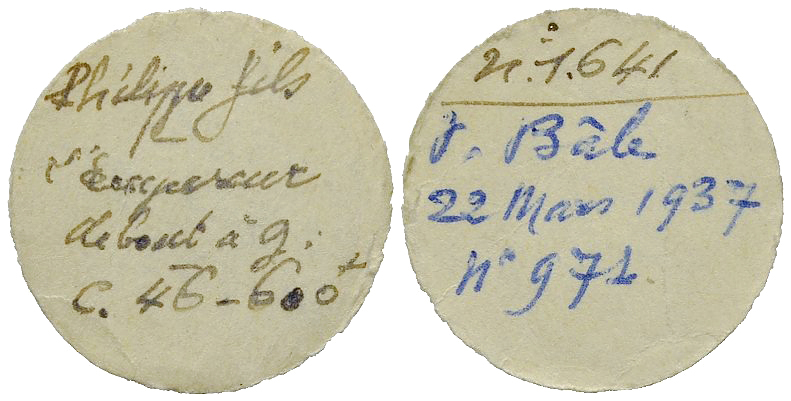 Philippe fils
l'Empereur
debout à g.
C. 46 - 600 +
n. 1.641
V. Bâle
22 Mars 1937
N° 971.